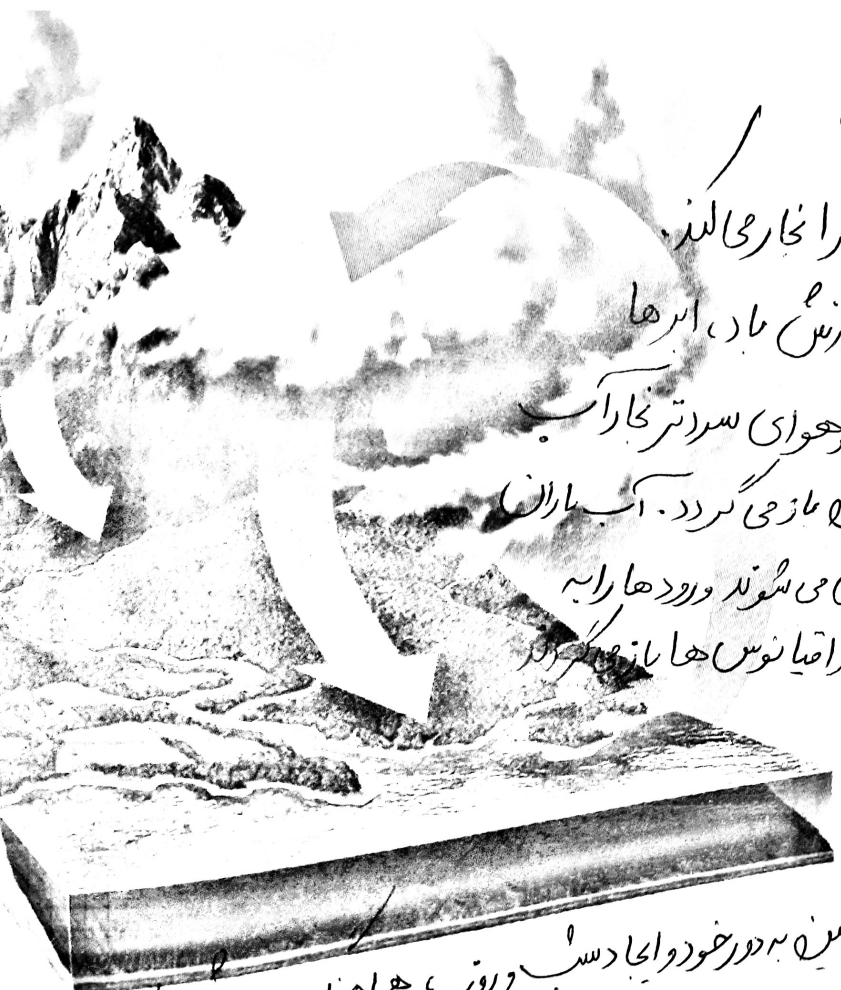 را بخار می کند.
وزش باد، ابرها
هوای سردتر بخار آب
باز می گردد. آب باران
می شوند و رودها را به
اقیانوس ها باز می گرداند
به دور خود و ایجاد شب و روز